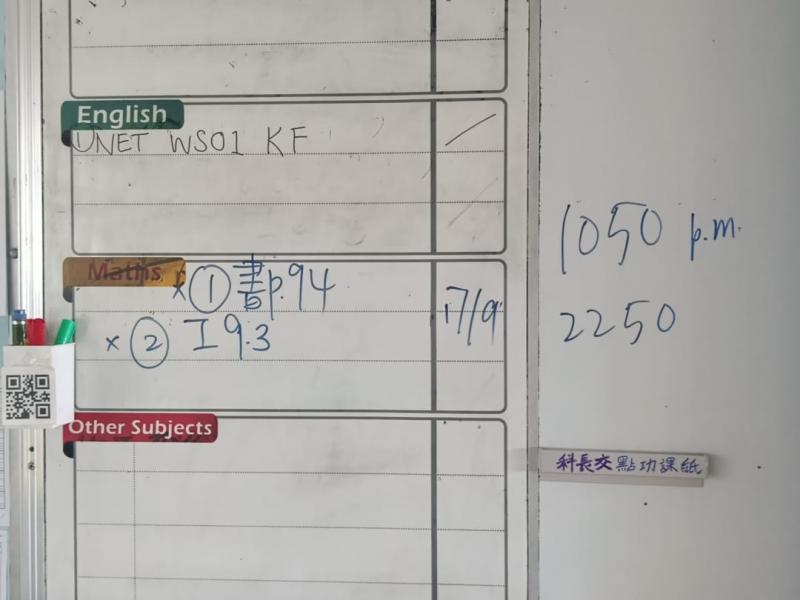 English
① NET WS01 KF
Maths
× ① 書p.94
× ② 工9.3
17/9
Other Subjects
1050 p.m.
2250
科長交點功課紙